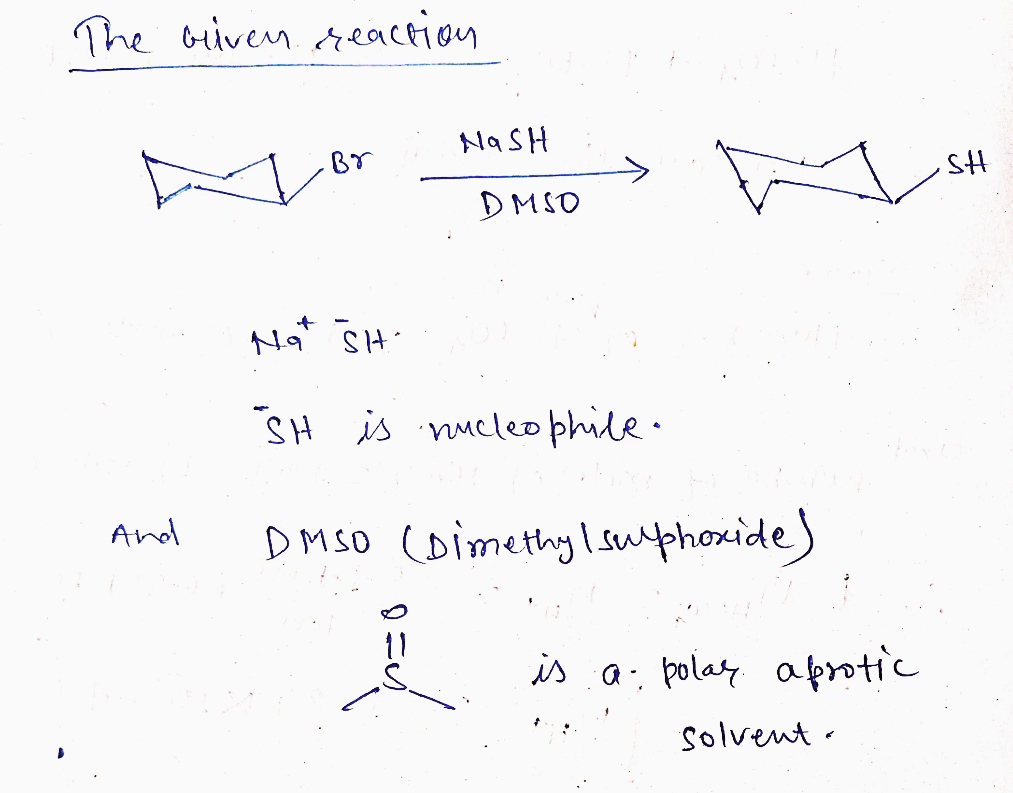 The Given reaction
Br
NaSH
DMSO
SH
Na⁺ ⁻SH.
⁻SH is nucleophile.
And DMSO (Dimethylsulphoxide)
O
S
is a polar aprotic
solvent.